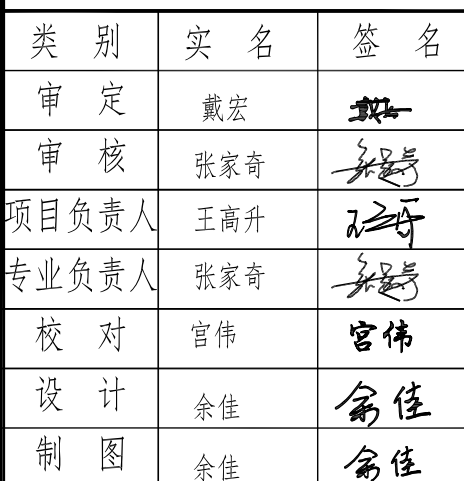 类别 实名 签名
审定 戴宏
审核 张家奇
项目负责人 王高升
专业负责人 张家奇
校对 宫伟 宫伟
设计 余佳 余佳
制图 余佳 余佳